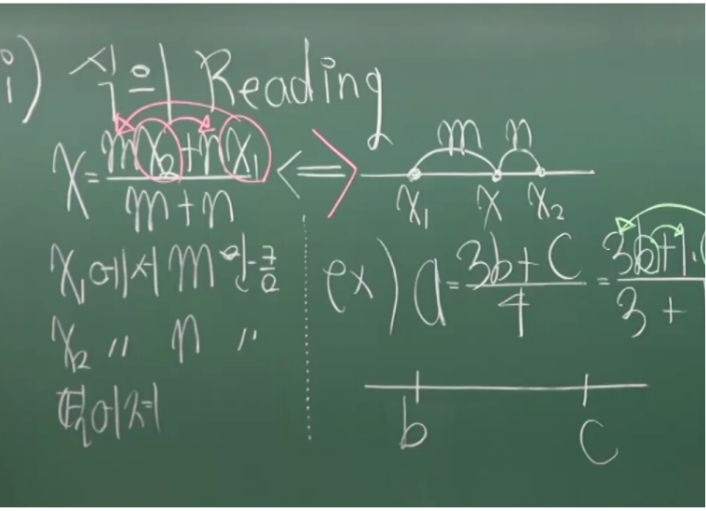 i) 식의 Reading
x = (mx₂+nx₁)/(m+n) <=> m n
x₁ x x₂
x₁에서 m만큼
x₂ 〃 n 〃
떨어져
ex) a = (3b+c)/4 = (3b+1·c)/(3+
b c